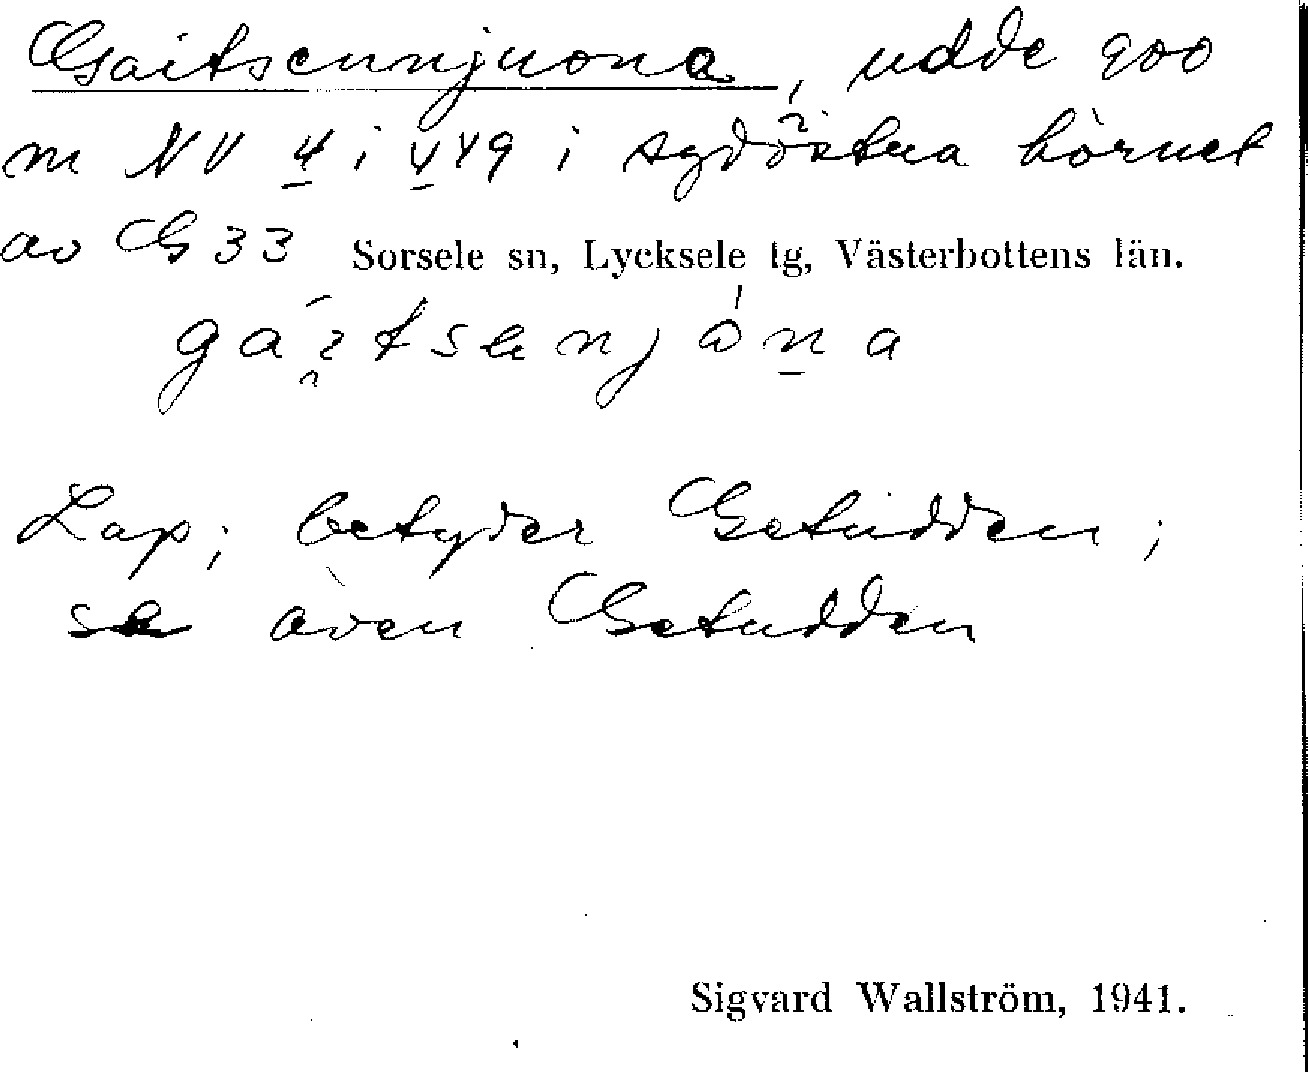 Gaitsenjuona, udde 900
m NV 4 i 449 i sydöstra hörnet
av G 33 Sorsele sn, Lycksele tg, Västerbottens län.
Lap; betyder Getudden;
se även Getudden
Sigvard Wallström, 1941.